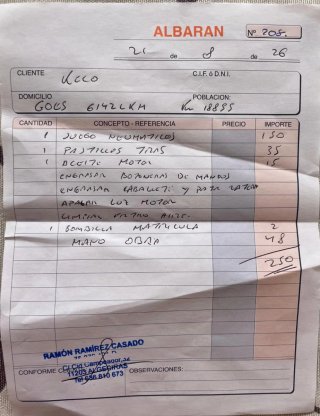 ALBARAN Nº 208.
21 de 8 de 26
CLIENTE KILO C.I.F. ó D.N.I.
DOMICILIO POBLACION:
GOES 6142LKM Km 18895
CANTIDAD CONCEPTO - REFERENCIA PRECIO IMPORTE
1 JUEGO NEUMATICOS 150
1 PASTILLOS TRAS 35
1 ACEITE MOTOR 15
ENGRASAR BOTONERAS DE MANDOS
ENGRASAR CABALLETE Y PATA LATERAL
APAGAR LUZ MOTOR
LIMPIAR FILTRO AIRE.
1 BOMBILLA MATRICULA 2
MANO OBRA 48
250
RAMÓN RAMÍREZ CASADO
C/ Cid Campeador, 32
11203 ALGECIRAS
CONFORME OBSERVACIONES: